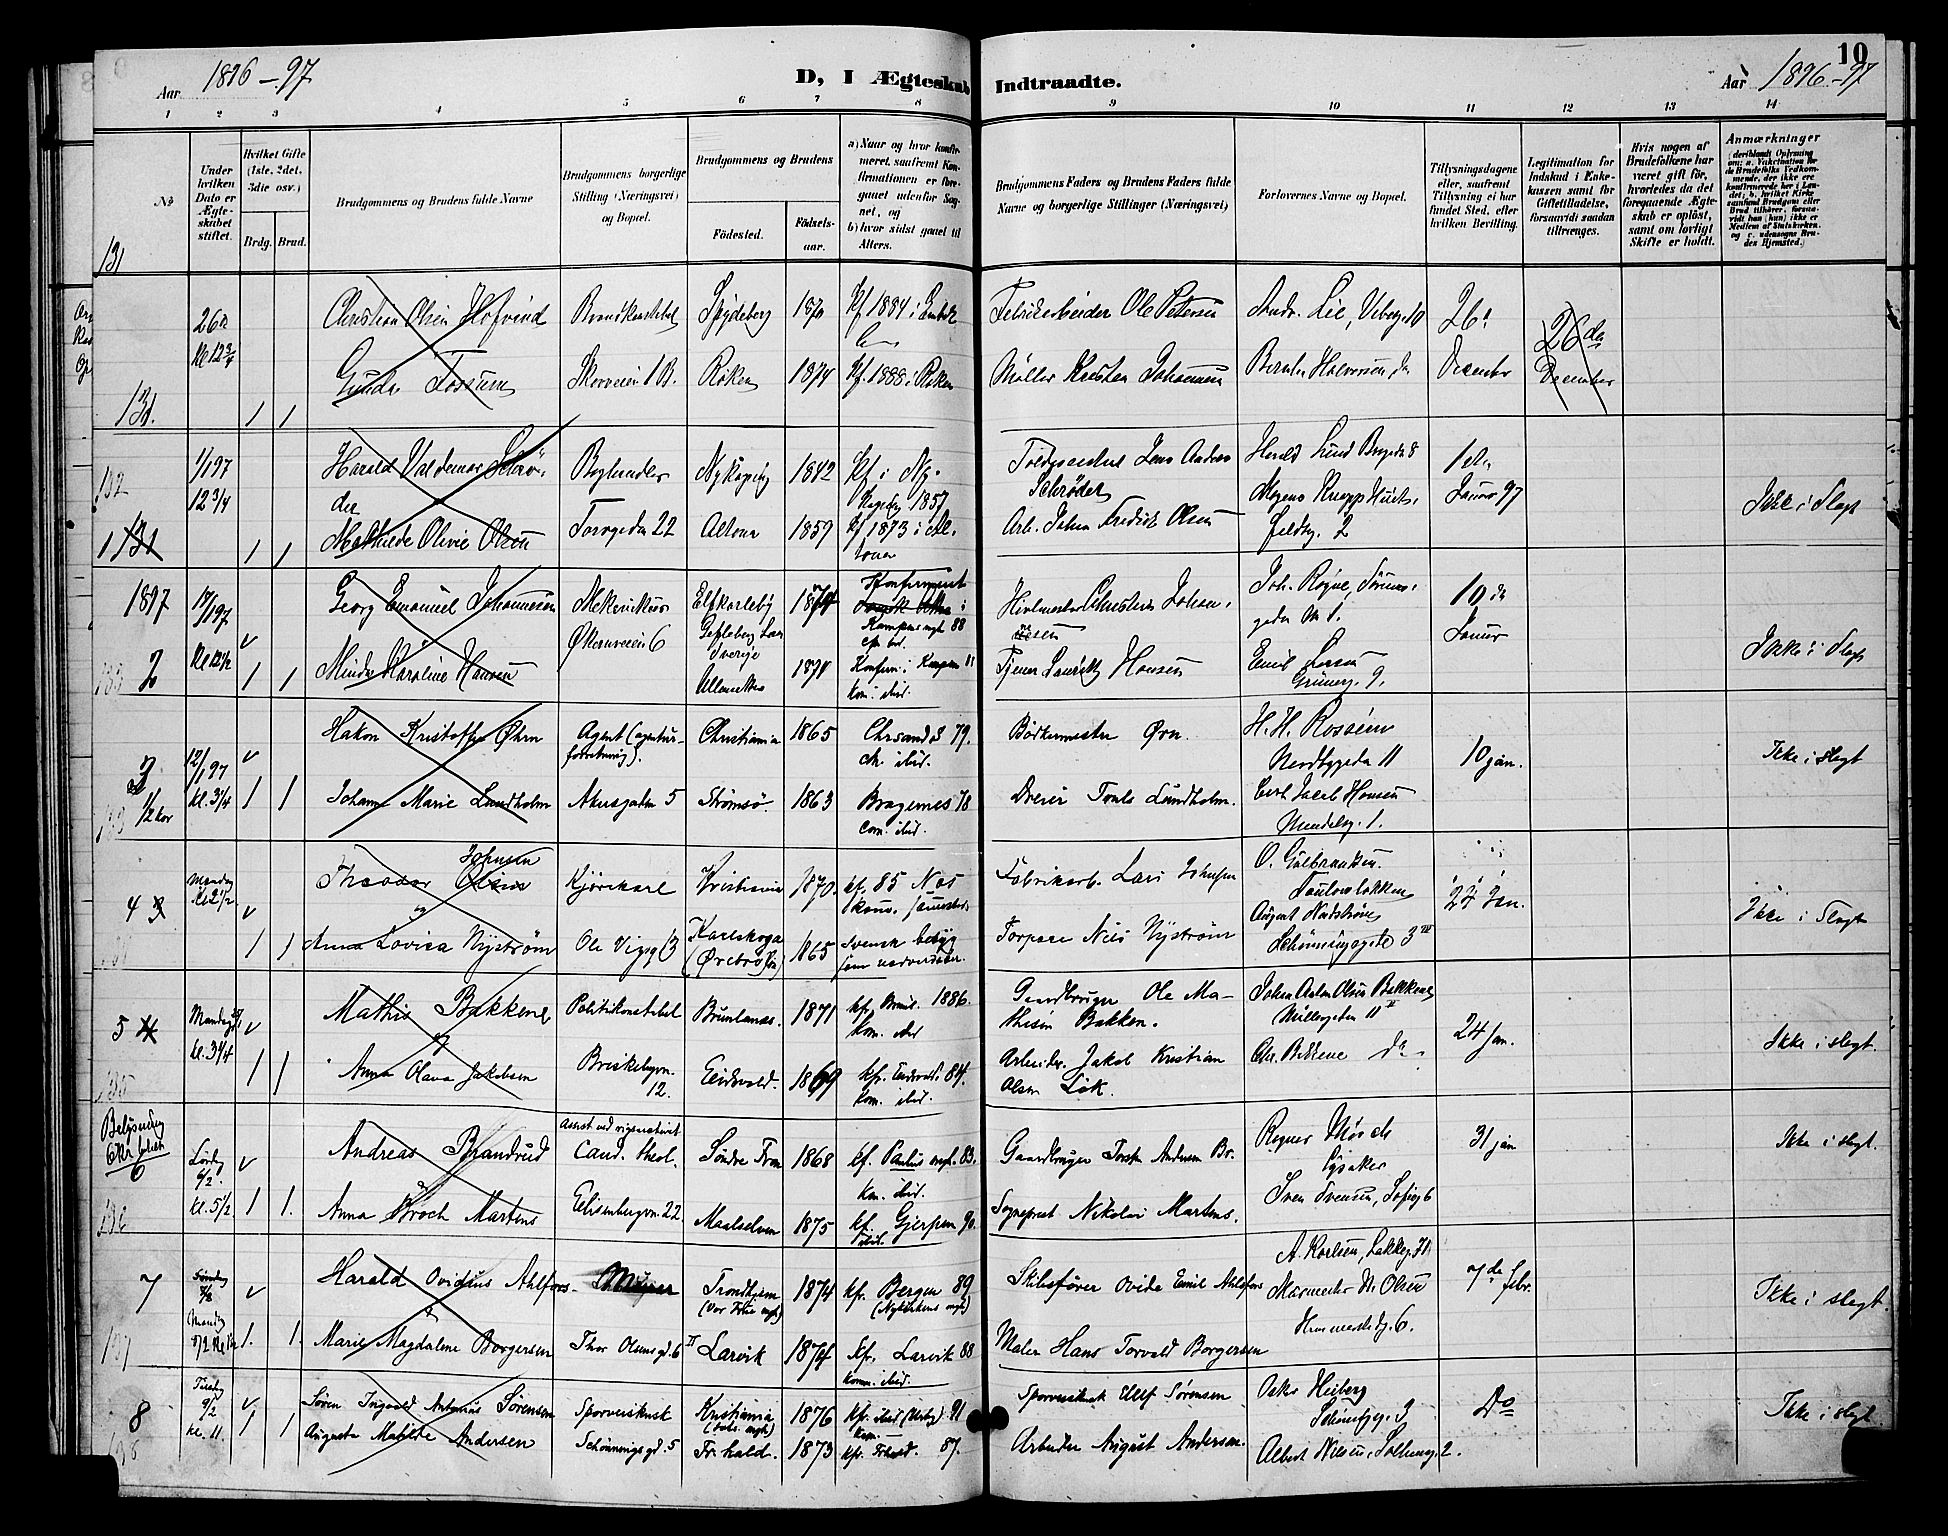 Aar 1896-97
D, I Ægteskab Indtraadte.
10
Aar 1896-97
1 2 3 4 5 6 7 8 9 10 11 12 13 14
No
Under hvilken Dato er Ægteskabet stiftet.
Hvilket Gifte (1ste, 2det, 3die osv.)
Brdg. Brud.
Brudgommens og Brudens fulde Navne
Brudgommens borgerlige Stilling (Næringsvei) og Bopæl.
Brudgommens og Brudens
Födested. Födselsaar.
a) Naar og hvor konfirmeret, saafremt Konfirmationen er foregaaet udenfor Sognet, og
b) hvor sidst gaaet til Alters.
Brudgommens Faders og Brudens Faders fulde Navne og borgerlige Stillinger (Næringsvei)
Forlovernes Navne og Bopæl.
Tillysningsdagene eller, saafremt Tillysning ei har fundet Sted, efter hvilken Bevilling.
Legitimation for Indskud i Enkekassen samt for Giftetilladelse, forsaavidt saadan tiltrænges.
Hvis nogen af Brudefolkene har været gift før, hvorledes da det foregaaende Ægteskab er opløst, samt om lovligt Skifte er holdt.
Anmærkninger
131
26de Kl 12 3/4
Christian Olsen Hofvind
Brandkonstabel
Spydeberg 1870
Kf. 1884 i
Ole Petersen
Andr. Lie, Viberg. 10
26
26de December
Gunda Tossum
Skovveien 1 B.
Røken 1874
Kf. 1888 i Røken
Møller Kristen Johansen
Bernt Halvorsen, do
December
131. 1 1
1/1 97
12 3/4
132
Harald Valdemar Schrøder
Boghandler
Nykøping 1842
Kf. i Ny-
1857
Jens Anders Schrøder
Harald Lund
1ste Januar 97
Ikke i Slægt
131 1 1
Mathilde Olivie Olsen
Torvgaden 22
Altona 1859
Kf 1873 i Altona
Arb. Johan Fredrik Olsen
2
1897
17/1 97
Georg Emanuel Johannesen
Mekanikus
Elfkarleby
1874
Konfirmeret
Kampens mgh 88
Joh. Rogne,
10de Januar
Ikke i Slægt
Økernveien 6
Gefleborg Län
Sverige
2 Kl 12 1/2 1 1
Minda Karoline Hansen
1874
Konfirm. i Kampen
Kom. ibid.
Tjener Lauritz Hansen
Emil Larsen
Grünerg. 9.
3
12/1 97
Kl. 3 1/4 1 1
Hakon Kristoffer Ørn
Agent (agentur-forretning).
Christiania 1865
Chrsand 79.
ibid.
Bødkermester Ørn.
H. H. Rossein
Nordbygaden 11
10 jan.
Ikke i slegt
Johanne Marie Lundholm
Akersgaden 5
Strømsø 1863
Bragernes 78
Com. ibid.
Dreier Lundholm.
Carl Jacob Hansen
4 3
Mandag
Kl 2 1/2
1 1
Theodor Olsen Johnsen
og
Kjørekarl
Kristiania 1870.
kf. 85 Nes
Fabrikarb. Lars Johnsen
O. Gulbrandsen.
Tauløvløkken
24 Jan.
Ikke i Slegt
Anna Lovisa Nyström
Ole Vigsg 13
Karlskoga
(Ørebro län) 1865
Svensk betyg
Torpare Nils Nyström
August Nordström
Schönningsgate 3 III
5 4
Mandag
kl. 3 1/4
1 1
Mathis Bakkene
og
Politikonstabel
Brunlanes. 1871
kf. Brunl. 1886.
kom. ibid
Gaardbruger Ole Mathisen Bakken.
Johan Anton Olsen Bakkene
Müllergaden 11 II
24 Jan.
Ikke i slegt.
Anna Olava Jakobsen
Briskebyvn. 12.
Eidsvold. 1869
kfr. Eidsvold. 84.
Kom. ibid.
Arbeider Jakob Kristian Olsen Løk.
Chr. Bakkene do
Belysning 6 Kr. betalt
6
Lørdag 6/2.
kl. 5 1/2 1 1.
Andreas Brandrud
Assist ved rigsarkivet
Cand. theol.
Søndre Fron 1868
kf. Paulus mgh. 83.
Km. ibid.
Gaardbruger Torsten Andersen Br.
Regner Mørch
Lysaker
31 jan
Ikke i slegt.
Anna Broch Martens
Elisenbergvn. 22
Maalselven 1875
kf. Gjerpen 90.
ibid.
Sogneprest Nikolai Martens.
Sven Svensen, Sofieg 6
7
Søndag 7/2
Mandag 8/2
1. 1.
Harald Ovidius Ahlfors
Murer
Trondhjem
(Vor Frue mgh) 1874
kfr. Bergen 89.
(Nykirkens mgh)
Skibsfører Ovide Emil Ahlfors
A. Karlsen, Lakkeg. 71
Murmester N. Olsen
7de Febr.
Ikke i slegt.
Marie Magdalene Borgersen
Thor Olsens gd. 6 II
Larvik 1874
kfr. Larvik 88
Komm. ibid.
Maler Hans Torvald Borgersen
Hammersb.g. 6.
8
Tirsdag 9/2
kl. 11. 1 1
Søren Ingvald Antonius Sørensen
Sporveiskusk
Kristiania 1876
kfr. ibid 91
Kom.
Sporveiskusk Ellef Sørensen
Oskar Heiberg
Do
Ikke i slegt.
Augusta Matilde Andersen
Schønnings gd. 5
Fr.hald. 1873
kfr. Frhald. 87.
Arbeider August Andersen.
Albert Nilsen, 2.